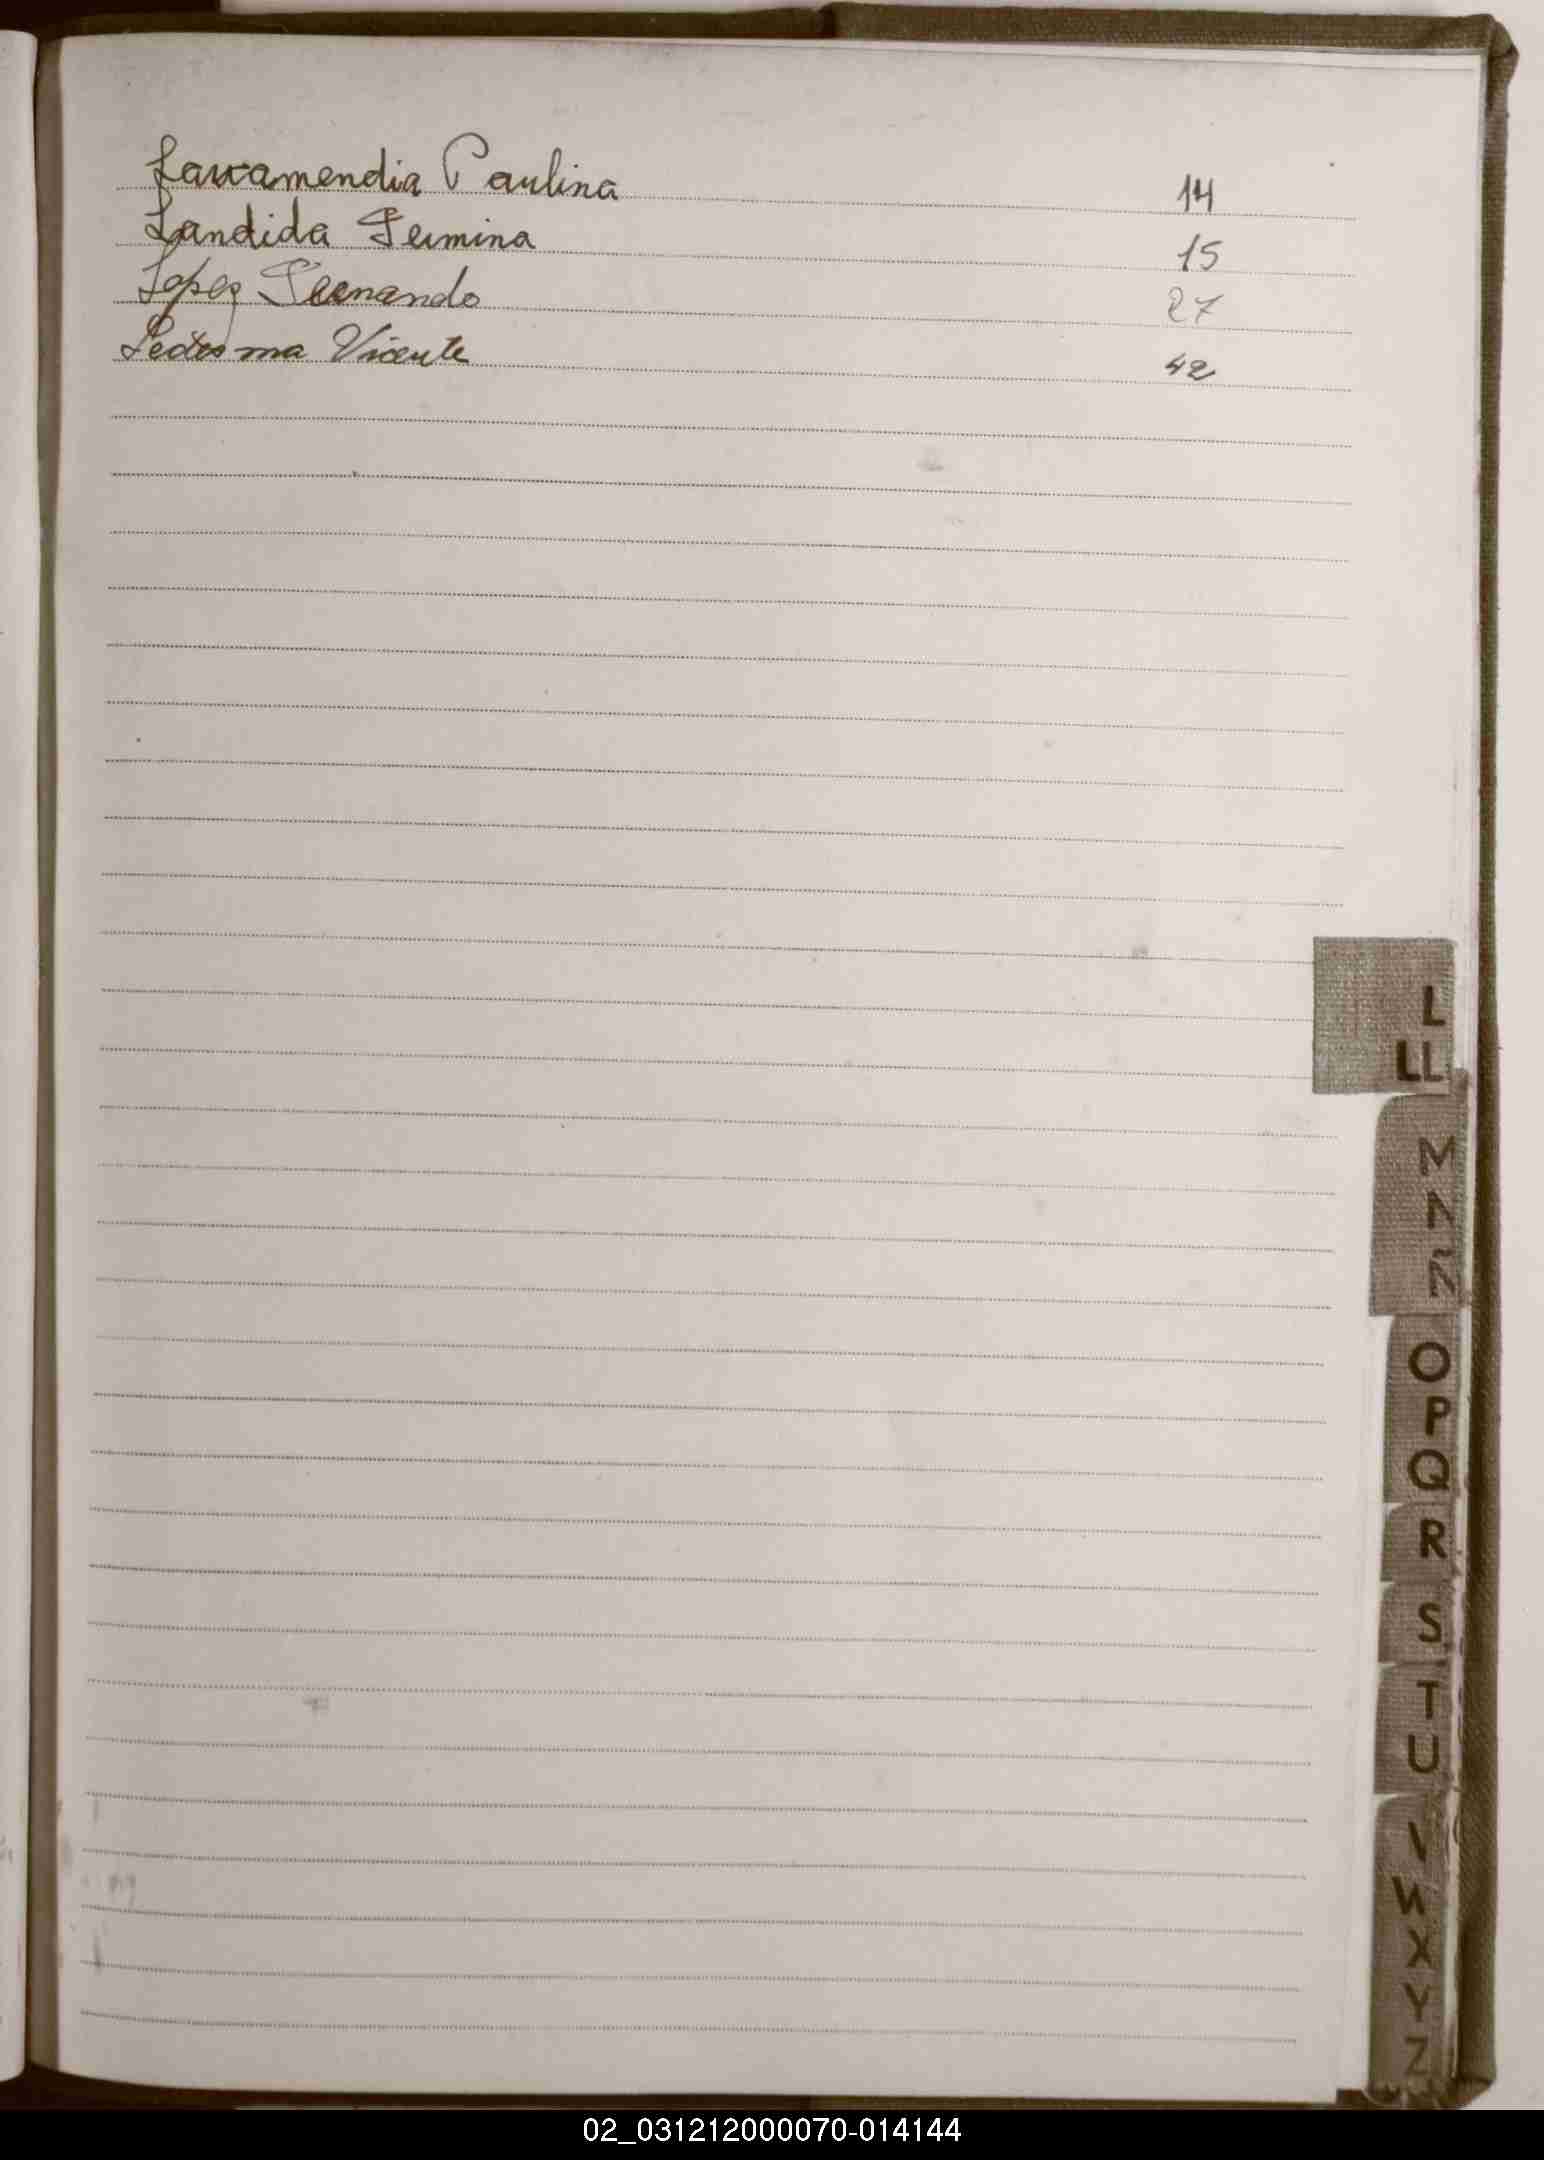 Larramendia Paulina 14
Landida Fermina 15
Lopez Fernando 27
Ledesma Vicente 42
L
LL
M
N
Ñ
O
P
Q
R
S
T
U
V
W
X
Y
Z
02_031212000070-014144